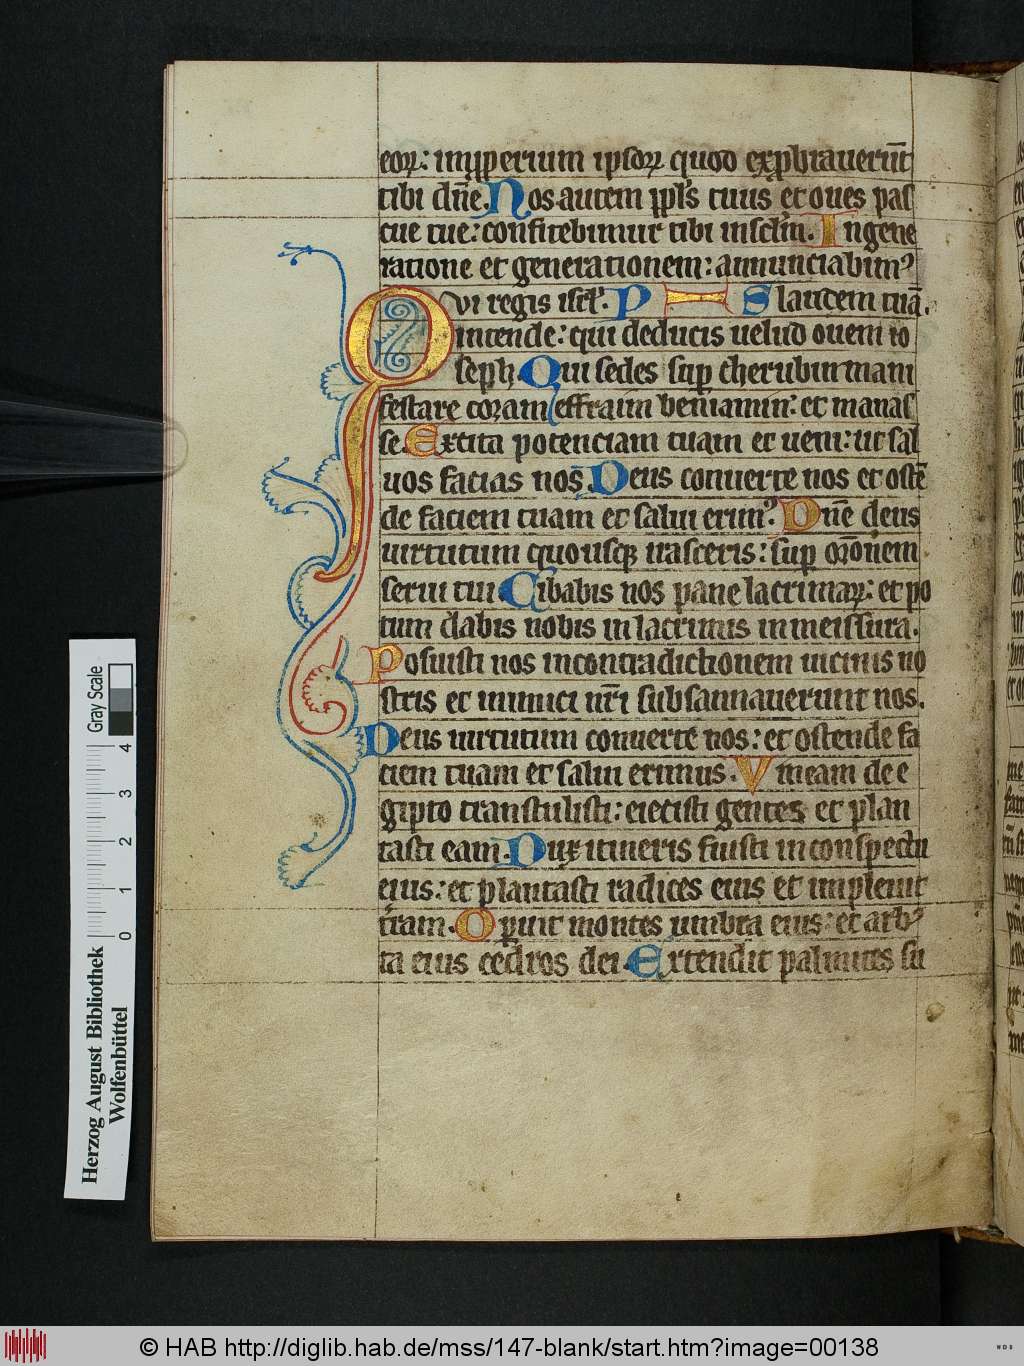 eoꝝ: imꝓperium ipsoꝝ quod exꝓbrauerūt
tibi dn̄e. Nos autem ppl's tuus et oues pas
cue tue: confitebimur tibi in sclm̄. In gene
ratione et generationem: annunciabimꝰ
Qvi regis isrl'. P H Slautem tuā.
intende: qui deducis uelud ouem io
seph. Qui sedes suꝑ cherubin mani
festare coram effraim beniamin: et manas
se. Excita potenciam tuam et ueni: ut sal
uos facias nos. Deus conuerte nos et ostē
de faciem tuam et salui erimꝰ. Dn̄e deus
uirtutum quousqꝫ irasceris: suꝑ orōnem
serui tui. Cibabis nos pane lacrimaꝝ: et po
tum dabis nobis in lacrimis in meissura.
Posuisti nos in contradictionem uicinis no
stris et inimici nr̄i subsannauerunt nos.
Deus uirtutum conuerte nos: et ostende fa
ciem tuam et salui erimus. Vineam de e
gipto transtulisti: eiecisti gentes et plan
tasti eam. Dux itineris fuisti in conspectu
eius: et plantasti radices eius et impleuit
tr̄am. Oꝑuit montes umbra eius: et arbꝰ
ta eius cedros dei. Extendit palmites su
Gray Scale
0 1 2 3 4
Herzog August Bibliothek
Wolfenbüttel
© HAB http://diglib.hab.de/mss/147-blank/start.htm?image=00138